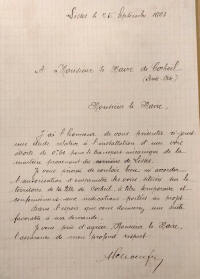 Lisses le 26 Septembre 1883
A Monsieur le Maire de Corbeil
(Seine-Oise)
Monsieur le Maire,
J'ai l'honneur de vous présenter ci-joint
une étude relative à l'installation d'une voie
étroite de 0.60 pour le transport mécanique de la
meulière provenant des carrières de Lisses.
Je vous prierai de vouloir bien m'accorder
l'autorisation d'emprunter des voies sur le
territoire de la Ville de Corbeil, à titre temporaire et
conformément aux indications portées au projet.
Dans l'espoir que vous donnerez une suite
favorable à ma demande.
Je vous prie d'agréer Monsieur le Maire,
l'assurance de mon profond respect.